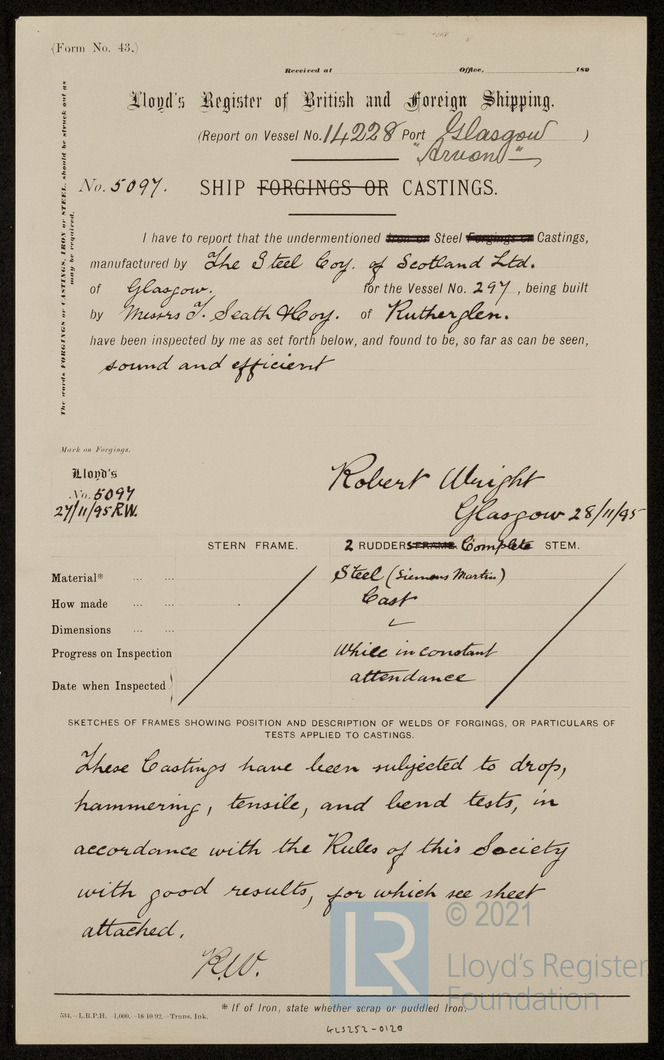 (Form No. 43.)
Received at Office, 189
Lloyd's Register of British and Foreign Shipping.
(Report on Vessel No. 14228 Port Glasgow )
"Arvon"
No. 5097. SHIP FORGINGS OR CASTINGS.
The words FORGINGS or CASTINGS, IRON or STEEL, should be struck out as
may be required.
I have to report that the undermentioned Iron or Steel Forgings or Castings,
manufactured by The Steel Coy. of Scotland Ltd.
of Glasgow. for the Vessel No. 297, being built
by Messrs T. Seath & Coy. of Rutherglen.
have been inspected by me as set forth below, and found to be, so far as can be seen,
sound and efficient
Mark on Forgings.
Lloyd's
No. 5097
27/11/95 R.W.
Robert Wright
Glasgow 28/11/95
STERN FRAME. 2 RUDDERS FRAME. Complete STEM.
Material* ... ... Steel (Siemens Martin)
How made ... ... Cast
Dimensions ... ...
Progress on Inspection While in constant
Date when Inspected attendance
SKETCHES OF FRAMES SHOWING POSITION AND DESCRIPTION OF WELDS OF FORGINGS, OR PARTICULARS OF
TESTS APPLIED TO CASTINGS.
These Castings have been subjected to drop,
hammering, tensile, and bend tests, in
accordance with the Rules of this Society
with good results, for which see sheet
attached.
R.W.
LR
© 2021
Lloyd's Register
Foundation
* If of Iron, state whether scrap or puddled Iron.
534.—L.R.P.H. 1,000.—18/10/92.—Trans. Ink.
GLS252-0120